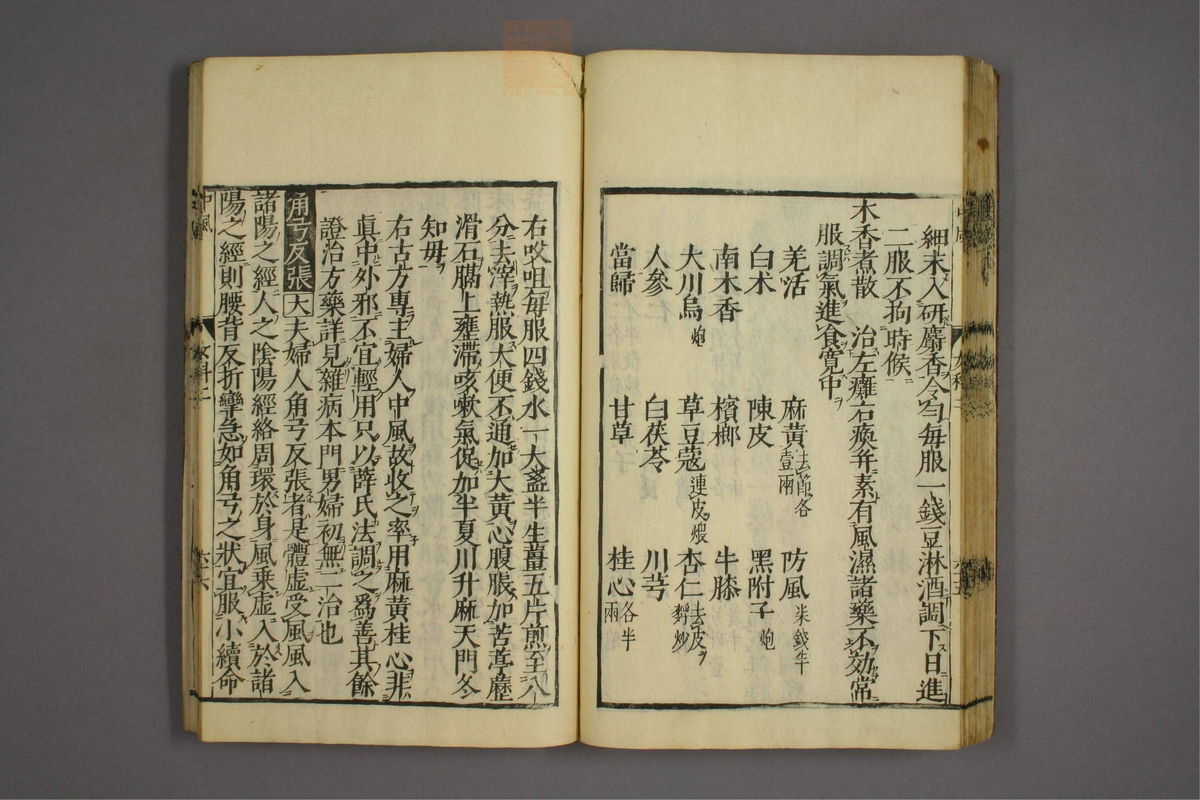 細末入研麝香令勻每服一錢豆淋酒調下日進
二服不拘時候
木香煮散　治左癱右瘓并素有風濕諸藥不効常
服調氣進食寬中
羌活　麻黃去節各壹兩　防風柒錢半
白朮　陳皮　黑附子炮
南木香　檳榔　牛膝
大川烏炮　草豆蔻連皮煨　杏仁去皮麩炒
人參　白茯苓　川芎
當歸　甘草　桂心各半兩
右㕮咀每服四錢水一大盞半生薑五片煎至八
分去滓熱服大便不通加大黃心腹脹加苦葶藶
滑石膈上壅滯咳嗽氣促加半夏川升麻天門冬
知毋
右古方專主婦人中風故收之率用麻黃桂心非
眞中外邪不宜輕用只以薛氏法調之爲善其餘
證治方藥詳見雜病本門男婦初無二治也
角弓反張　大夫婦人角弓反張者是體虛受風風入
諸陽之經人之陰陽經絡周環於身風乘虛入於諸
陽之經則腰背反折攣急如角弓之狀宜服小續命
中風　女科二　六六